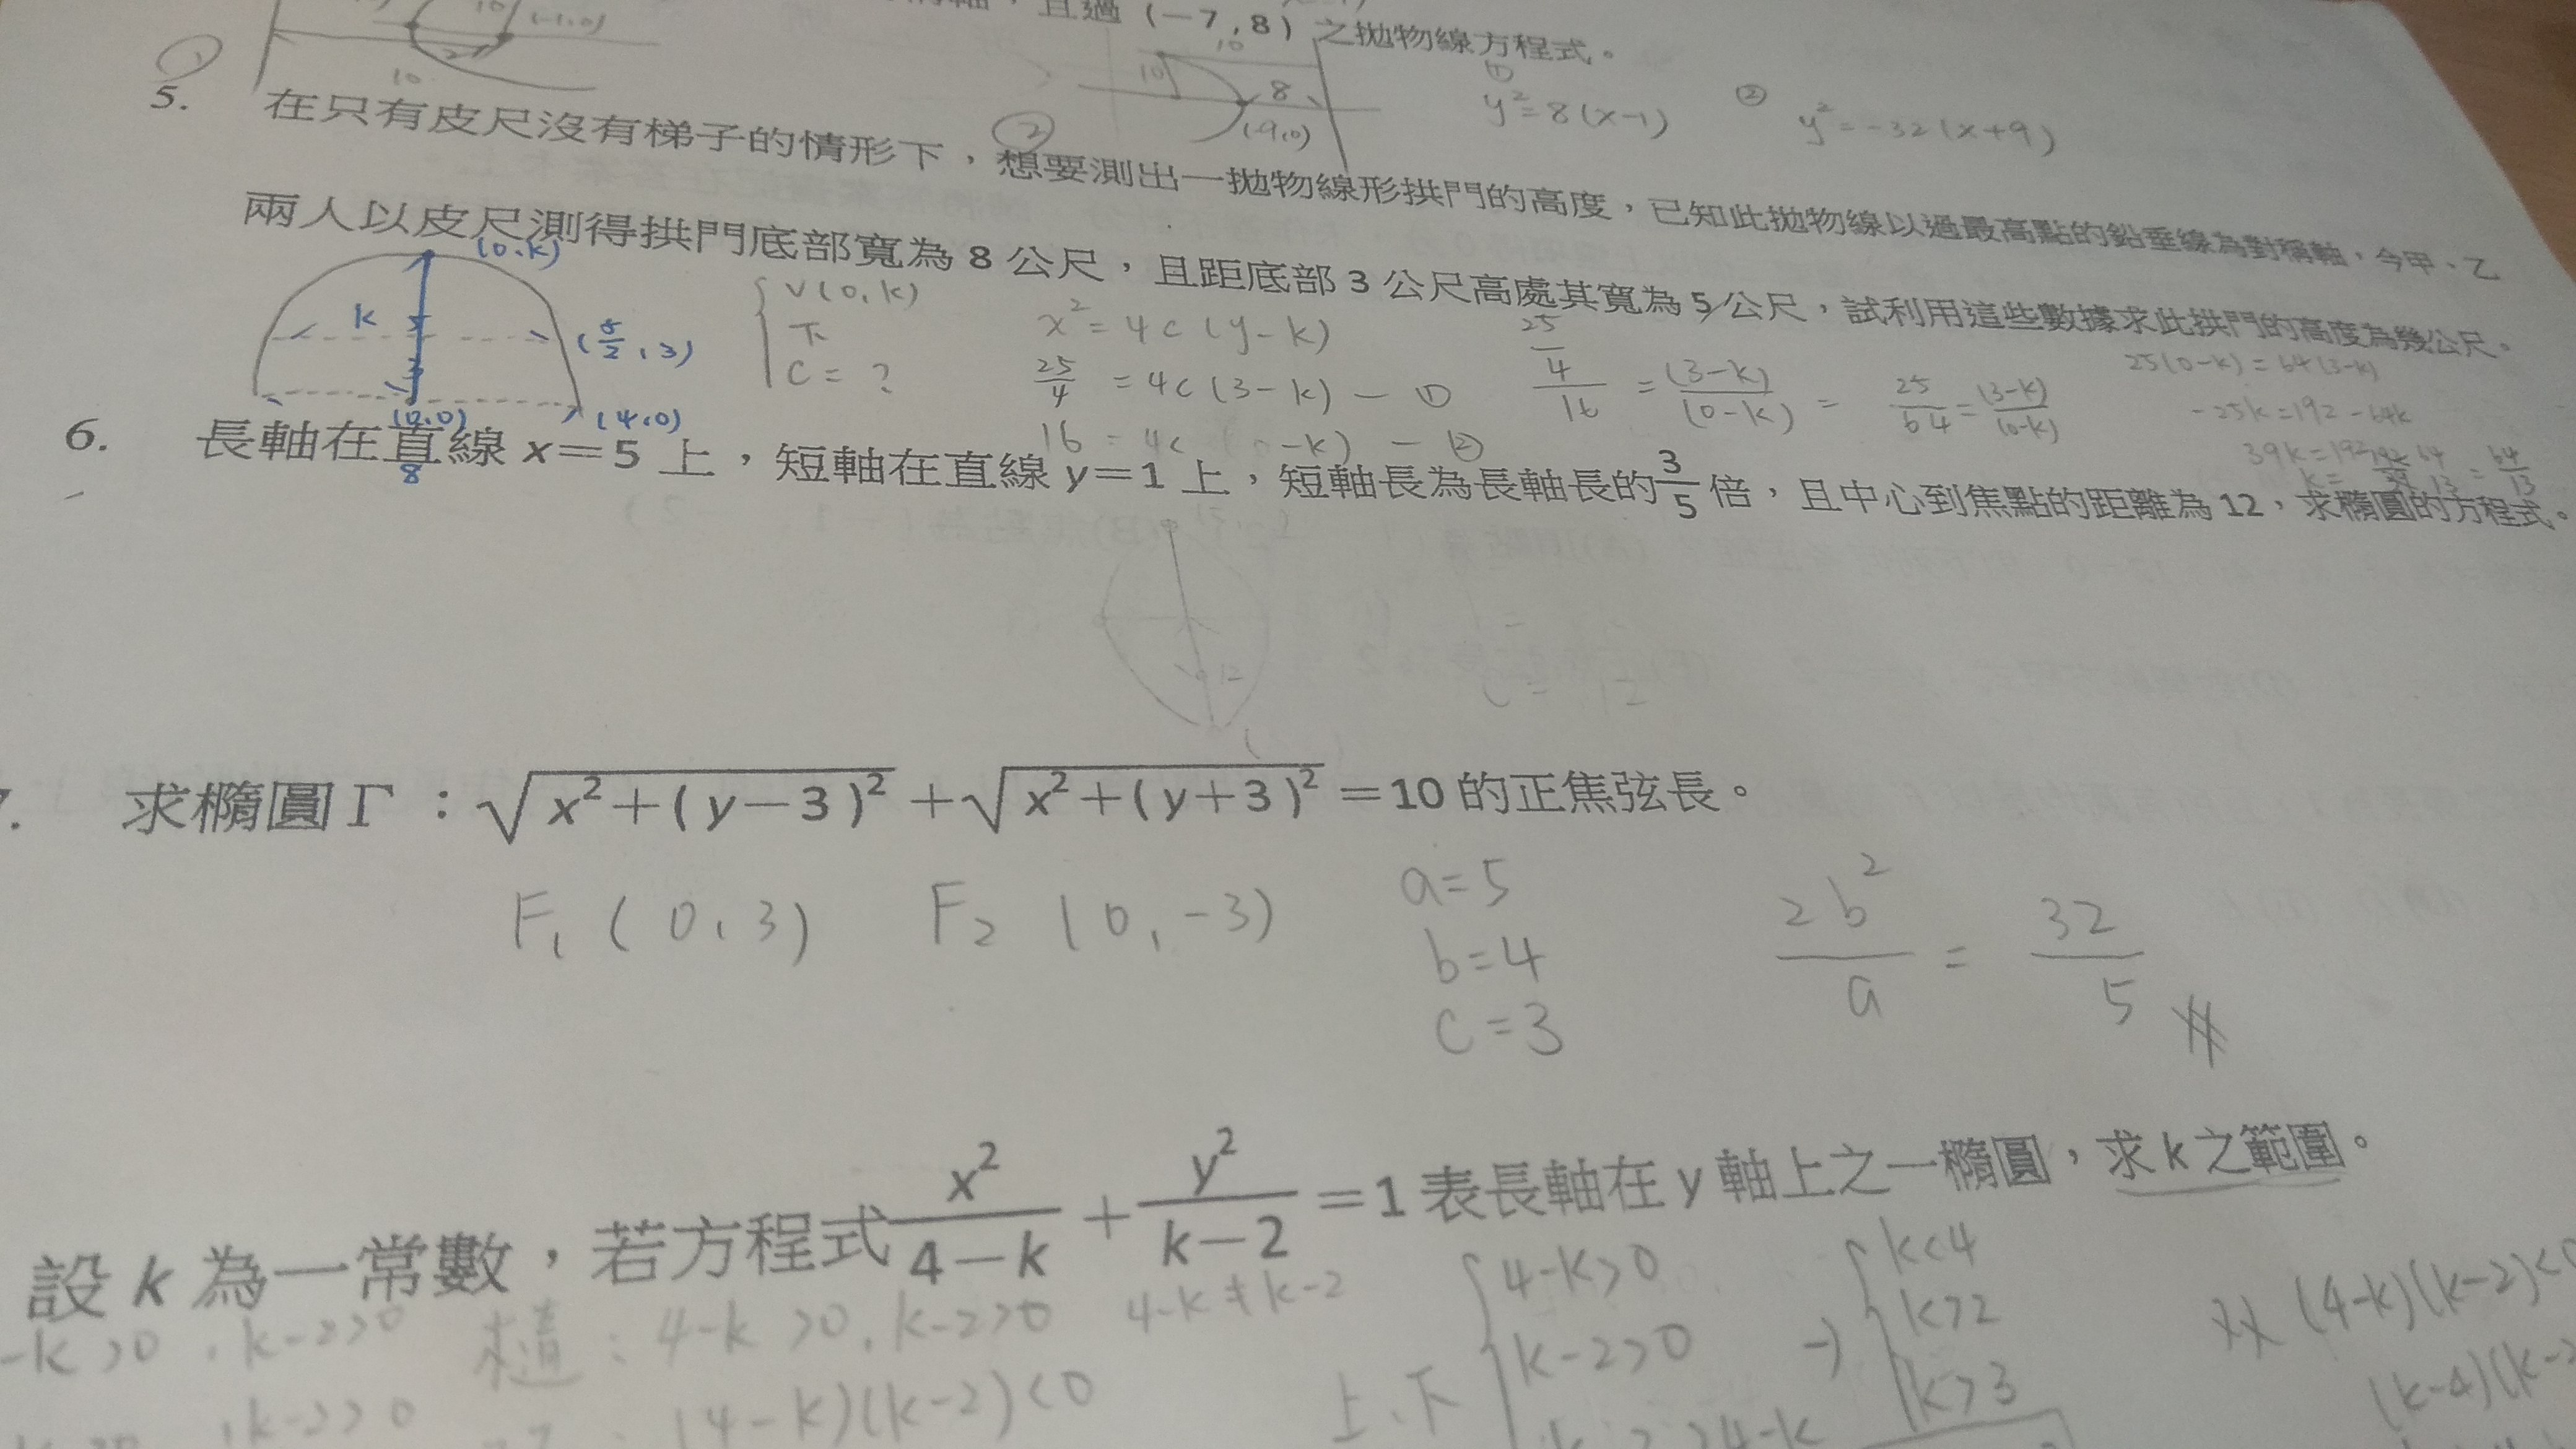 且過 (−7,8) 之拋物線方程式。
10
(-1,0)
2
10
10
10
8
(-9,0)
① y²=8(x-1)
② y²=-32(x+9)
①
②
5. 在只有皮尺沒有梯子的情形下，想要測出一拋物線形拱門的高度，已知此拋物線以過最高點的鉛垂線為對稱軸，今甲、乙
兩人以皮尺測得拱門底部寬為 8 公尺，且距底部 3 公尺高處其寬為 5 公尺，試利用這些數據求此拱門的高度為幾公尺。
(0,k)
k
5
3
(5/2, 3)
(0,0)
(4,0)
8
V(0,k)
下
C=?
x²=4c(y-k)
25/4=4c(3-k)—①
16=4c( -k)—②
25/4/16=(3-k)/(0-k)=25/64=(3-k)/(0-k)
25(0-k)=64(3-k)
-25k=192-64k
39k=192
k= =64/13
6. 長軸在直線 x=5 上，短軸在直線 y=1 上，短軸長為長軸長的3/5倍，且中心到焦點的距離為 12，求橢圓的方程式。
12
c=12
7. 求橢圓Γ：√x²+(y−3)²+√x²+(y+3)²=10 的正焦弦長。
F₁(0,3) F₂(0,-3)
a=5
b=4
c=3
2b²/a=32/5
設 k 為一常數，若方程式x²/4−k+y²/k−2=1 表長軸在 y 軸上之一橢圓，求 k 之範圍。
-k>0, k-2>0
: 4-k>0, k-2>0 4-k≠k-2
, k-2>0
: (4-k)(k-2)<0
上、下
4-k>0
k-2>0
k-2>4-k
→
k<4
k>2
k>3
双 (4-k)(k-2)<0
(k-4)(k-2